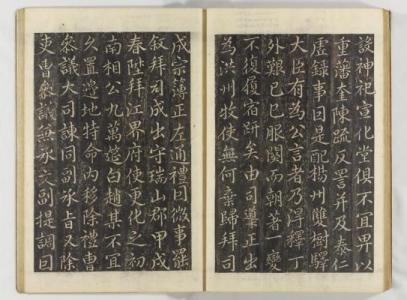 設神祀宣化堂俱不宜畀以
重藩奎陳疏反詈并及泰仁
虛錄事囙是配楊州雙樹驛
大臣有為公言者乃得釋丁
外艱己巳服闋而朝著一變
不復履宿趼矣由司導正出
為洪州牧使無何棄歸拜司
成宗簿正左通禮囙微事罷
叙拜司成出守瑞山郡甲戌
春陞拜江界府使更化之初
南相公九萬筵白趙某不宜
久置邊地特命內移除禮曹
叅議大司諫同副承旨又除
吏曹叅議兼承文副提調囙